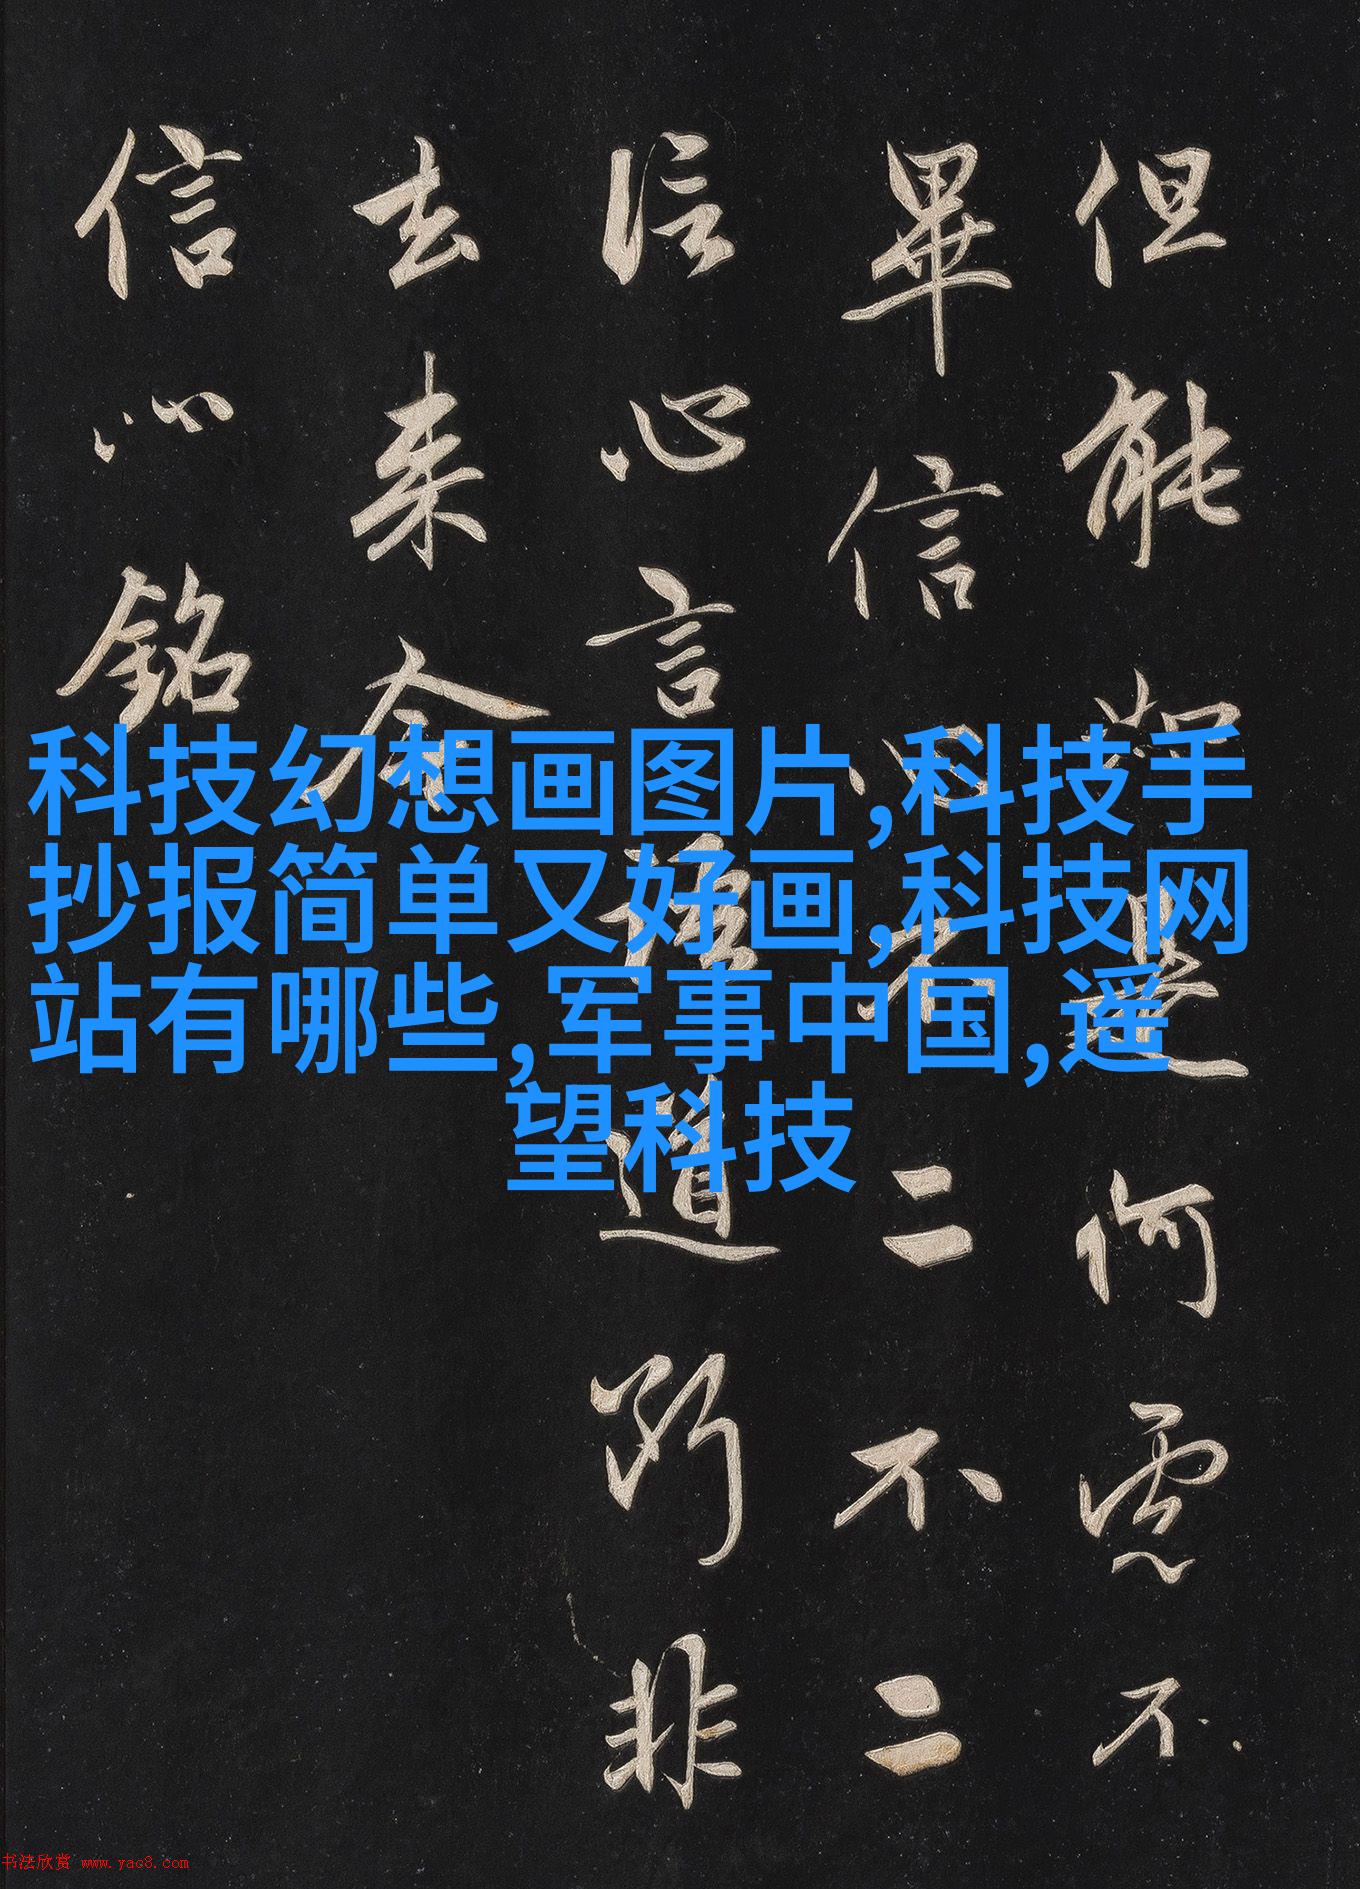 但能如是何慮不
畢信心不二不二
信心言語道斷非
去来今
信心銘
科技幻想画图片,科技手
抄报简单又好画,科技网
站有哪些,军事中国,遥
望科技
书法欣赏 www.yac8.com